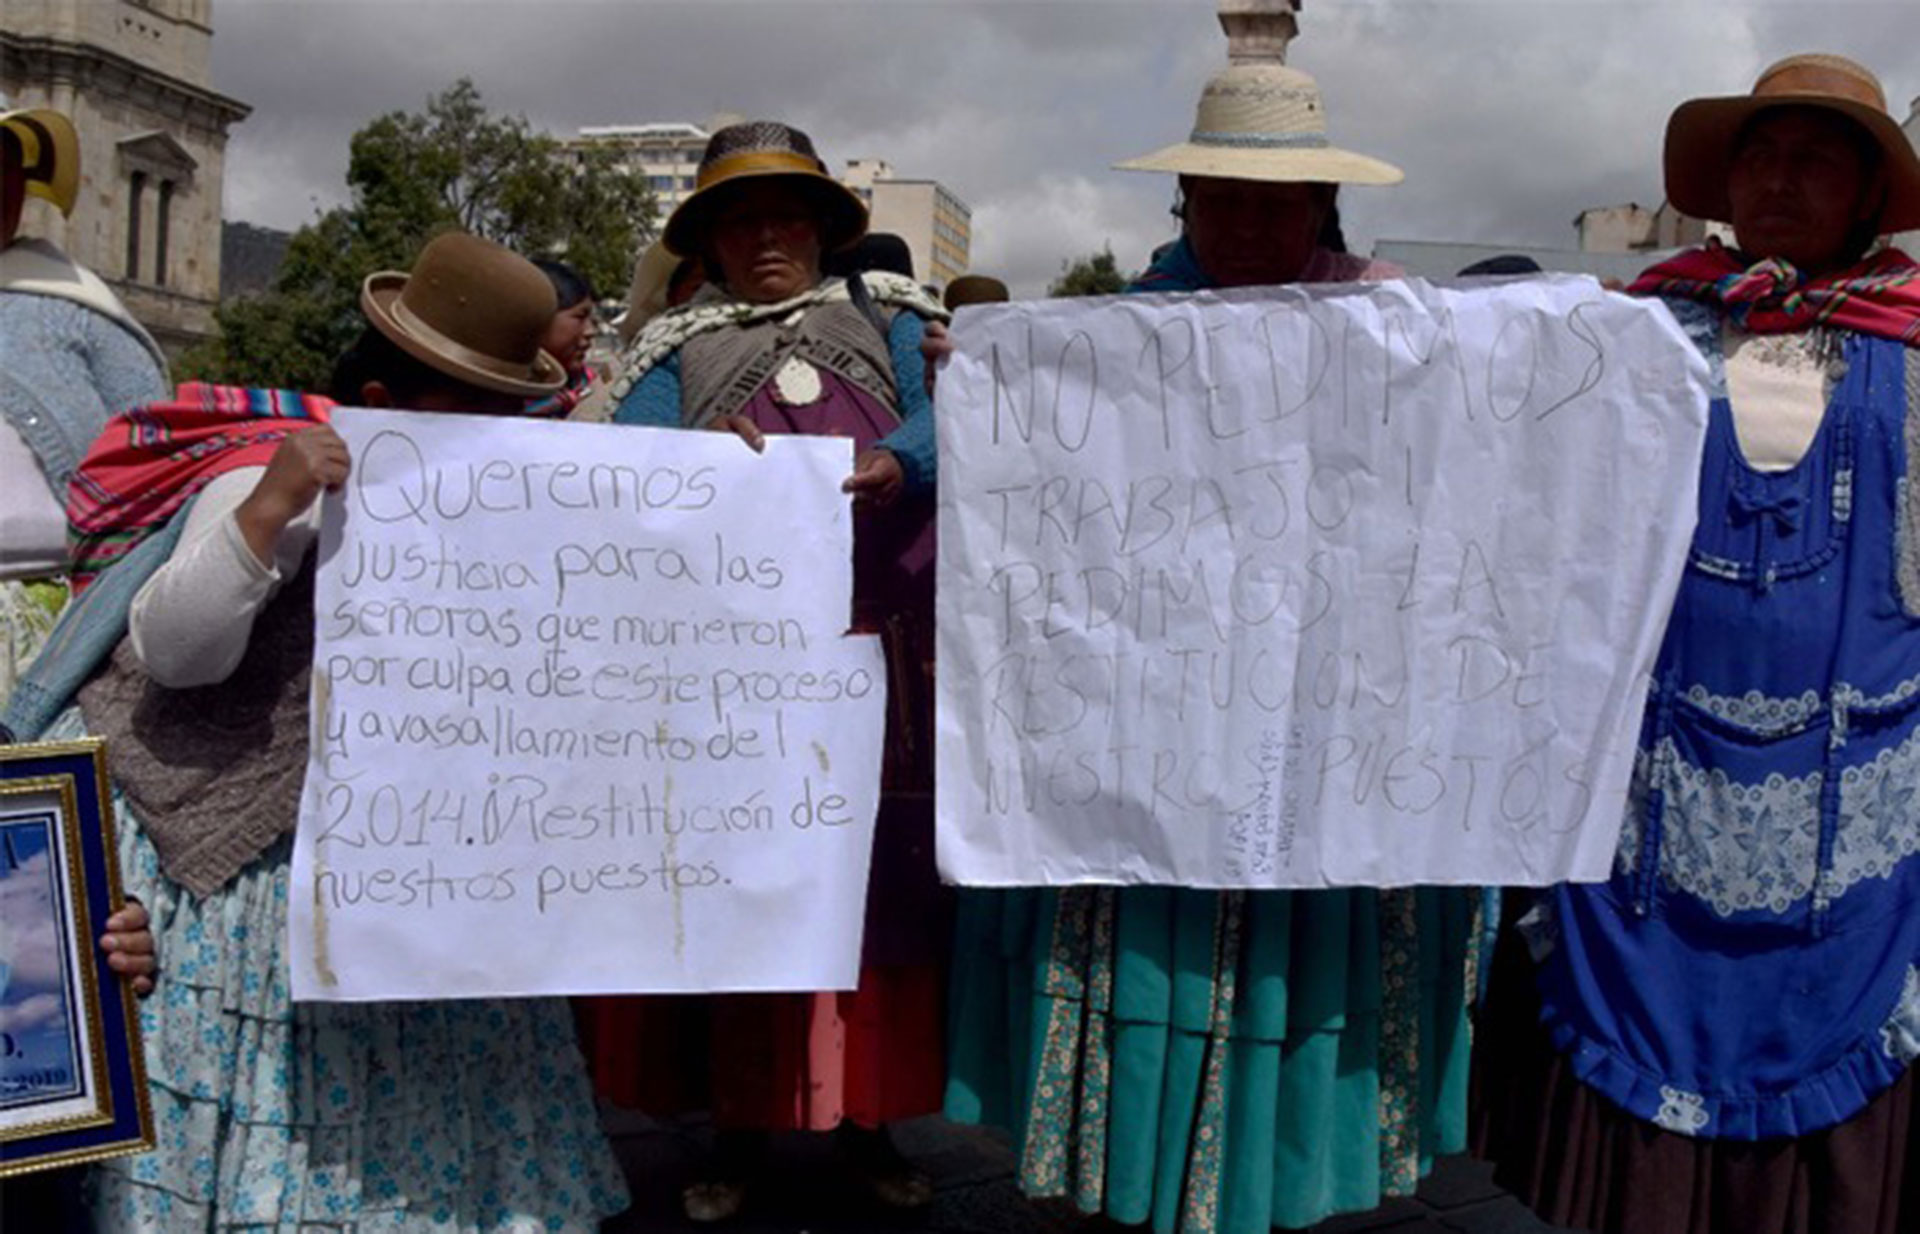 Queremos
justicia para las
señoras que murieron
por culpa de este proceso
y avasallamiento del
2014. ¡Restitución de
nuestros puestos.
NO PEDIMOS
TRABAJO!
PEDIMOS LA
RESTITUCION DE
NUESTROS PUESTOS
2019